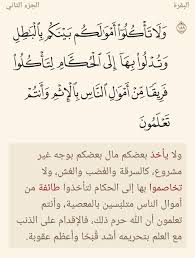 البقرة
الجزء الثاني
وَلَا تَأْكُلُوٓا۟ أَمْوَٰلَكُم بَيْنَكُم بِٱلْبَٰطِلِ
وَتُدْلُوا۟ بِهَآ إِلَى ٱلْحُكَّامِ لِتَأْكُلُوا۟
فَرِيقًا مِّنْ أَمْوَٰلِ ٱلنَّاسِ بِٱلْإِثْمِ وَأَنتُمْ
تَعْلَمُونَ
ولا يأخذ بعضكم مال بعضكم بوجه غير
مشروع، كالسرقة والغصب والغش، ولا
تخاصموا بها إلى الحكام لتأخذوا طائفة من
أموال الناس متلبّسين بالمعصية، وأنتم
تعلمون أن الله حرم ذلك، فالإقدام على الذنب
مع العلم بتحريمه أشد قُبْحًا وأعظم عقوبة.